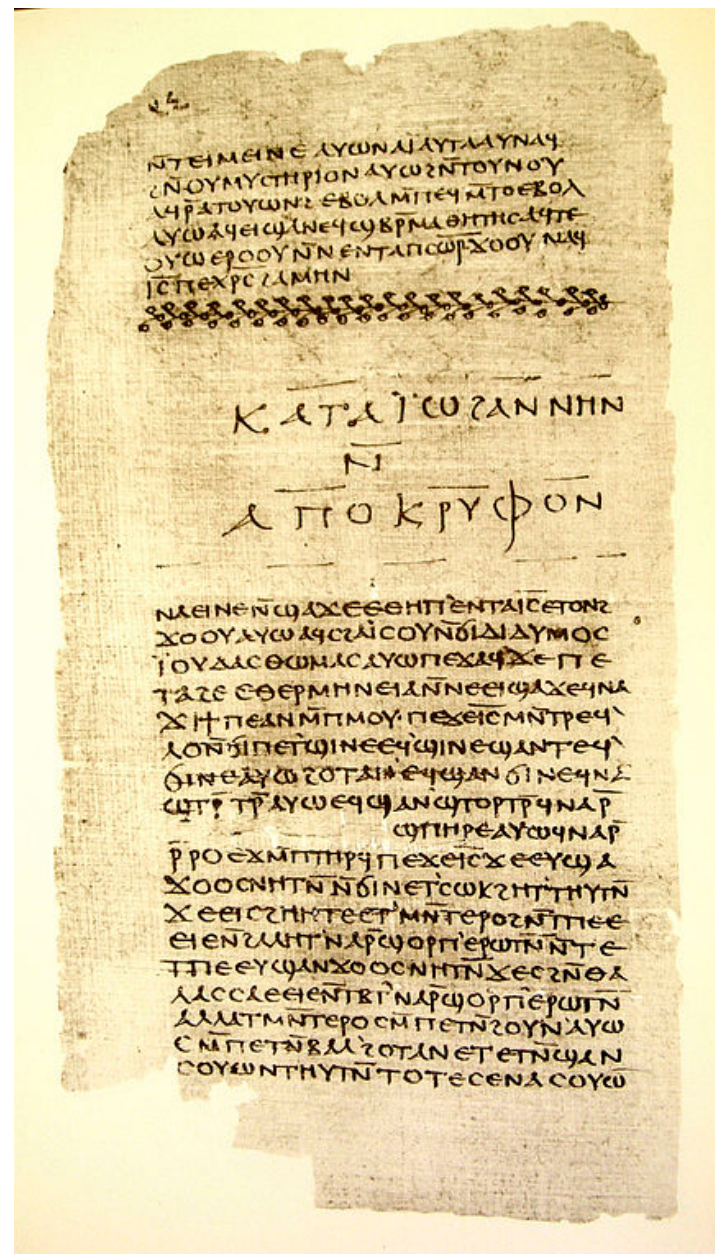 ⲗ̅ⲃ̅
ⲛ̄ⲧⲉⲓⲙⲉⲓⲛⲉ ⲁⲩⲱ ⲛⲁⲓ̈ ⲁⲩⲧⲁⲁⲩ ⲛⲁϥ
ϩⲛ̄ ⲟⲩⲙⲩⲥⲧⲏⲣⲓⲟⲛ ⲁⲩⲱ ϩⲛ̄ ⲧⲟⲩⲛⲟⲩ
ⲁϥⲣ̄ⲁⲧⲟⲩⲱⲛϩ ⲉⲃⲟⲗ ⲙ̄ⲡⲉϥⲙ̄ⲧⲟ ⲉⲃⲟⲗ
ⲁⲩⲱ ⲁϥⲉⲓ ϣⲁ ⲛⲉϥϣⲃⲣ̄ⲙⲁⲑⲏⲧⲏⲥ ⲁϥⲧⲉ
ⲟⲩⲱ ⲉⲣⲟⲟⲩ ⲛ̄ⲛⲉⲛⲧⲁⲡⲥⲱ̄ⲣ̄ ϫⲟⲟⲩ ⲛⲁϥ
ⲓ̅ⲥ̅ ⲡⲉⲭ̅ⲣ̅ⲥ̅ ϩⲁⲙⲏⲛ
ⲕⲁⲧⲁ ⲓ̈ⲱϩⲁⲛⲛⲏⲛ
ⲛ̄
ⲁⲡⲟⲕⲣⲩⲫⲟⲛ
ⲛⲁⲉⲓ ⲛⲉ ⲛ̄ϣⲁϫⲉ ⲉⲑⲏⲡ' ⲉⲛⲧⲁⲓ̅ⲥ̅ ⲉⲧⲟⲛϩ
ϫⲟⲟⲩ ⲁⲩⲱ ⲁϥⲥϩⲁⲓ̈ⲥⲟⲩ ⲛ̄ϭⲓ ⲇⲓⲇⲩⲙⲟⲥ
ⲓ̈ⲟⲩⲇⲁⲥ ⲑⲱⲙⲁⲥ ⲁⲩⲱ ⲡⲉϫⲁϥ ϫⲉ ⲡⲉ
ⲧⲁϩⲉ ⲉⲑⲉⲣⲙⲏⲛⲉⲓⲁ ⲛ̄ⲛⲉⲉⲓϣⲁϫⲉ ϥⲛⲁ
ϫⲓ ϯⲡⲉ ⲁⲛ ⲙ̄ⲡⲙⲟⲩ· ⲡⲉϫⲉ ⲓ̅ⲥ̅ ⲙⲛ̄ⲧⲣⲉϥ'
ⲗⲟ ⲛ̄ϭⲓ ⲡⲉⲧϣⲓⲛⲉ ⲉϥϣⲓⲛⲉ ϣⲁⲛⲧⲉϥ'
ϭⲓⲛⲉ ⲁⲩⲱ ϩⲟⲧⲁⲛ ⲉϥϣⲁⲛϭⲓⲛⲉ ϥⲛⲁ
ϣⲧⲣ̄ⲧⲣ̄ ⲁⲩⲱ ⲉϥϣⲁⲛϣⲧⲟⲣⲧⲣ̄ ϥⲛⲁⲣ̄
ϣⲡⲏⲣⲉ ⲁⲩⲱ ϥⲛⲁⲣ̄
ⲣ̄ⲣⲟ ⲉϫⲙ̄ ⲡⲧⲏⲣϥ ⲡⲉϫⲉ ⲓ̅ⲥ̅ ϫⲉ ⲉⲩϣⲁ
ϫⲟⲟⲥ ⲛⲏⲧⲛ̄ ⲛ̄ϭⲓ ⲛⲉⲧ'ⲥⲱⲕ ϩⲏⲧ' ⲧⲏⲩⲧⲛ̄
ϫⲉ ⲉⲓⲥϩⲏⲏⲧⲉ ⲉⲧ'ⲙⲛ̄ⲧⲉⲣⲟ ϩⲛ̄ ⲧⲡⲉ ⲉ
ⲉⲓⲉ ⲛ̄ϩⲁⲗⲏⲧ' ⲛⲁⲣ̄ ϣⲟⲣⲡ' ⲉⲣⲱⲧⲛ̄ ⲛ̄ⲧⲉ
ⲧⲡⲉ ⲉⲩϣⲁⲛϫⲟⲟⲥ ⲛⲏⲧⲛ̄ ϫⲉ ⲥϩⲛ̄ ⲑⲁ
ⲗⲁⲥⲥⲁ ⲉⲉⲓⲉ ⲛ̄ⲧⲃⲧ' ⲛⲁⲣ̄ ϣⲟⲣⲡ' ⲉⲣⲱⲧⲛ̄
ⲁⲗⲗⲁ ⲧⲙⲛ̄ⲧⲉⲣⲟ ⲥⲙ̄ⲡⲉⲧⲛ̄ϩⲟⲩⲛ' ⲁⲩⲱ
ⲥⲙ̄ⲡⲉⲧⲛ̄ⲃⲁⲗ' ϩⲟⲧⲁⲛ ⲉⲧⲉⲧⲛ̄ϣⲁⲛ
ⲥⲟⲩⲱⲛ ⲧⲏⲩⲧⲛ̄ ⲧⲟⲧⲉ ⲥⲉⲛⲁⲥⲟⲩⲱ̄